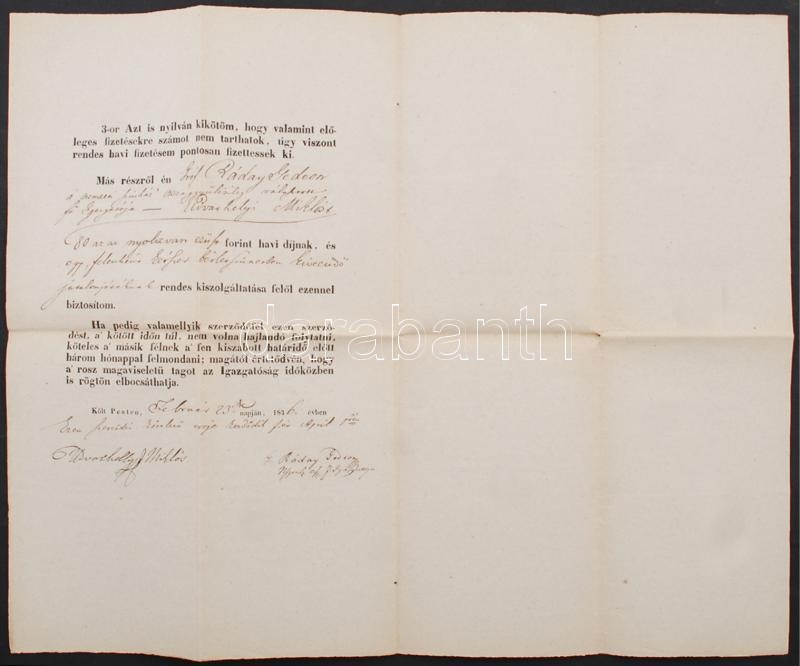 3-or Azt is nyilván kikötöm, hogy valamint elő-
leges fizetésekre számot nem tarthatok, úgy viszont
rendes havi fizetésem pontosan fizettessek ki.
Más részről én Gróf Ráday Gedeon
a nemzeti színház
fő Igazgatója — Udvarhelyi Miklóst
80 az az nyolczvan ezüst forint havi díjnak, és
egy
jutalomjátéknak rendes kiszolgáltatása felől ezennel
biztosítom.
Ha pedig valamellyik szerződőfél ezen szerző-
dést, a' kötött időn túl, nem volna hajlandó folytatni,
köteles a' másik félnek a' fen kiszabott határidő előtt
három hónappal felmondani; magától értetődvén, hogy
a' rosz magaviseletű tagot az Igazgatóság időközben
is rögtön elbocsáthatja.
Költ Pesten, Február 23 napján, 1846. évben
Ezen April
Udvarhelyi Miklós
Ráday Gedeon
darabanth